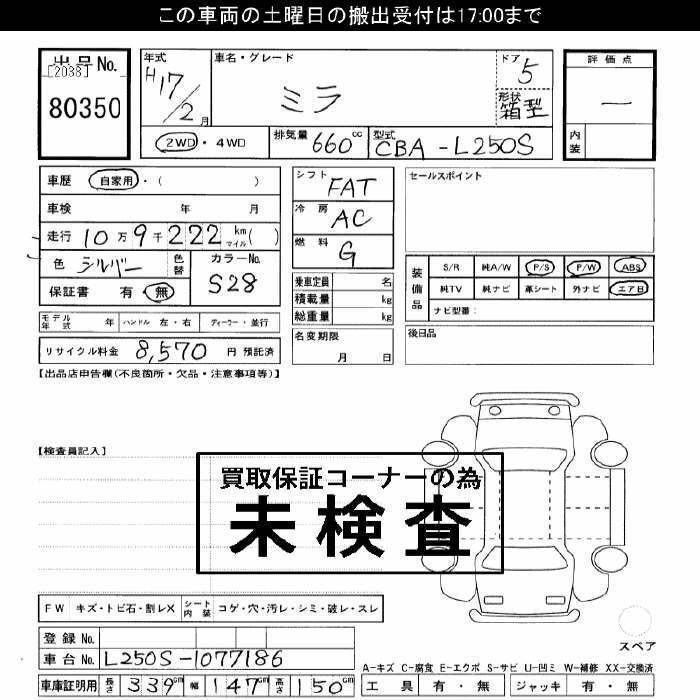 この車両の土曜日の搬出受付は17:00まで
出品No.
[2038]
80350
年式 H17/2月
車名・グレード
ミラ
ドア 5
形状 箱型
評価点
ー
内装
2WD・4WD
排気量 660cc
型式 CBA-L250S
車歴 自家用・( )
車検 年 月
走行 10万9千222 km マイル( )
色 シルバー 色替 カラーNo. S28
保証書 有・無
シフト FAT
冷房 AC
燃料 G
乗車定員 名
積載量 kg
総重量 kg
名変期限 月 日
セールスポイント
装備品
S/R 純A/W P/S P/W ABS
純TV 純ナビ 革シート 外ナビ エアB
ナビ型番:
後日品
モデル年式 年 ハンドル 左・右 ディーラー・並行
リサイクル料金 8,570 円 預託済
【出品店申告欄(不良箇所・欠品・注意事項等)】
【検査員記入】
買取保証コーナーの為
未検査
FW キズ・トビ石・割レX シート内装 コゲ・穴・汚レ・シミ・破レ・スレ
登録No.
車台No. L250S-1077186
車庫証明用 長さ 339cm 幅 147cm 高さ 150cm
スペア
A-キズ C-腐食 E-エクボ S-サビ U-凹ミ W-補修 XX-交換済
工具 有・無 ジャッキ 有・無